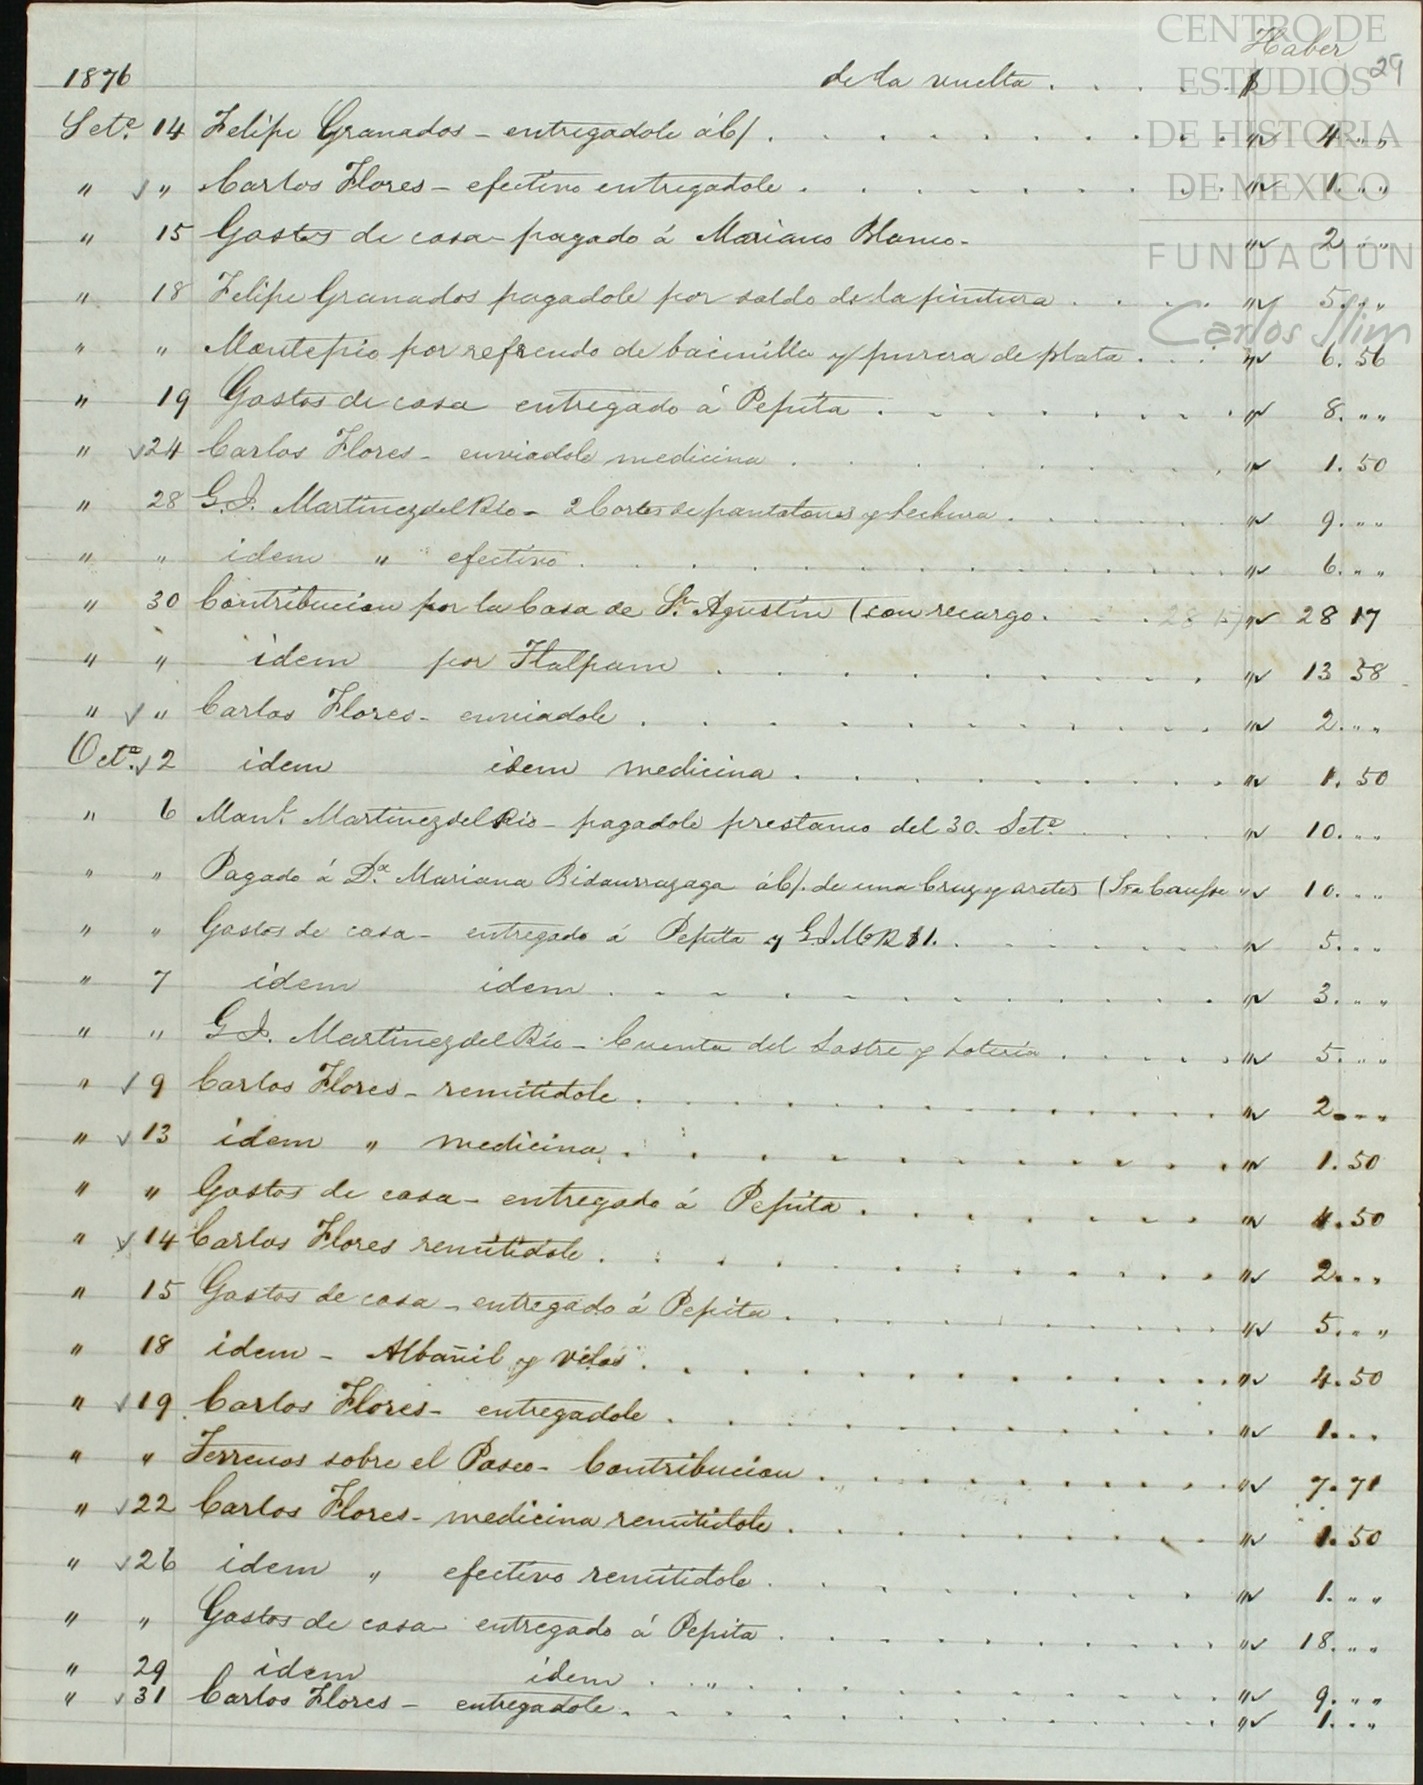 CENTRO DE
ESTUDIOS
DE HISTORIA
DE MEXICO
FUNDACIÓN
Carlos Slim
Haber
29
1876 de la vuelta . . . . . $
Set.e 14 Felipe Granados - entregadole áb/ . . . . " 4. " "
" √ " Carlos Flores - efectivo entregadole . . . . " 1. " "
" 15 Gastos de casa - pagado á Mariano Blanco - " 2. " "
" 18 Felipe Granados pagadole por saldo de la pintura . . . . " 5. " "
" " Montepio por refrendo de bacinilla y purera de plata . . . " 6. 56
" 19 Gastos de casa entregado á Pepita . . . . " 8. " "
" √ 24 Carlos Flores - enviadole medicina . . . . " 1. 50
" 28 G. I. Martinez del Rio - 2 Cortes de pantalones y hechura . . . . " 9. " "
" " idem " efectivo . . . . " 6. " "
" 30 Contribucion por la Casa de Sn. Agustin (con recargo . . . 28 17) " 28 17
" " idem por Tlalpam . . . . " 13 58
" √ " Carlos Flores - enviadole . . . . " 2. " "
Oct.e √ 2 idem idem medicina . . . . " 1. 50
" 6 Manl. Martinez del Rio - pagadole prestamo del 30. Set.e . . . . " 10. " "
" " Pagado á D.a Mariana Bidaurrazaga áb/. de una Cruz y aretes ( " 10. " "
" " Gastos de casa - entregado á Pepita y G.I.M.R $1. . . . . " 5. " "
" 7 idem idem . . . . " 3. " "
" " G. I. Martinez del Rio - Cuenta del Sastre y Loteria . . . . " 5. " "
" √ 9 Carlos Flores - remitidole . . . . " 2. " "
" √ 13 idem " medicina . . . . " 1. 50
" " Gastos de casa - entregado á Pepita . . . . " 4. 50
" √ 14 Carlos Flores remitidole . . . . " 2. " "
" 15 Gastos de casa - entregado á Pepita . . . . " 5. " "
" 18 idem - Albañil y velas . . . . " 4. 50
" √ 19 Carlos Flores - entregadole . . . . " 1. " "
" " Terrenos sobre el Paseo - Contribucion . . . . " 7. 71
" √ 22 Carlos Flores - medicina remitidole . . . . " 1. 50
" √ 26 idem " efectivo remitidole . . . . " 1. " "
" " Gastos de casa - entregado á Pepita . . . . " 18. " "
" 29 idem idem . . . . " 9. " "
" √ 31 Carlos Flores - entregadole . . . . " 1. " "